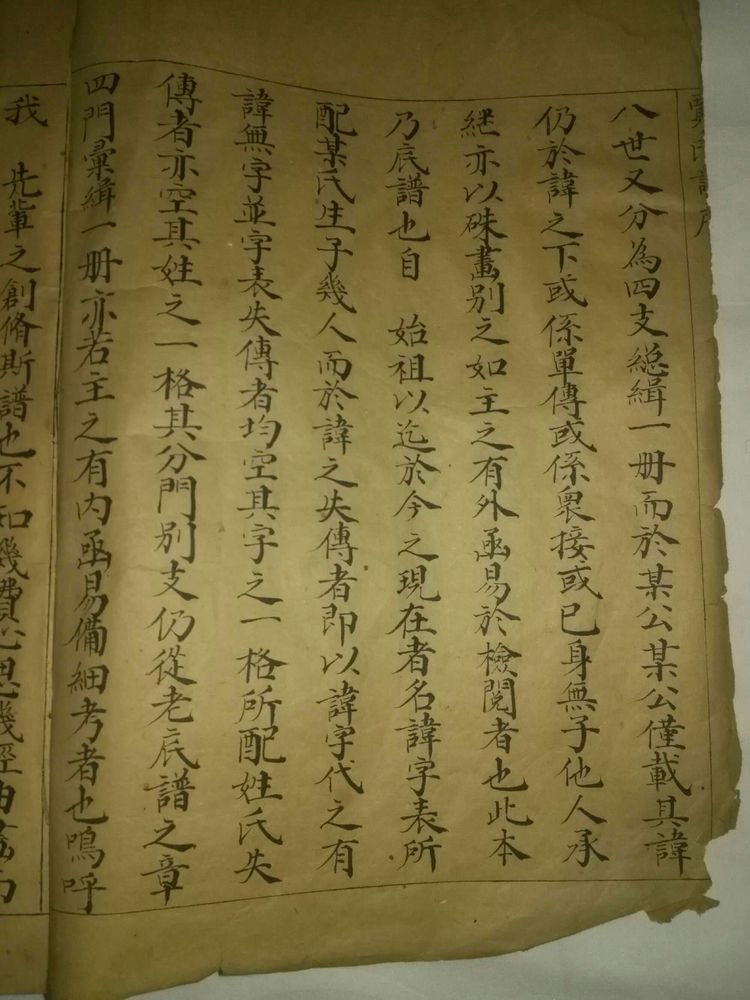 八世又分為四支總緝一册而於某公某公僅載其諱
仍於諱之下或係單傳或係衆接或已身無子他人承
継亦以硃畫別之如主之有外函易於檢閱者也此本
乃底譜也自 始祖以迄於今之現在者名諱字表所
配某氏生子幾人而於諱之失傳者即以諱字代之有
諱無字並字表失傳者均空其字之一格所配姓氏失
傳者亦空其姓之一格其分門別支仍從老底譜之章
四門彙緝一册亦若主之有内函易備細考者也嗚呼
我 先輩之創脩斯譜也不知幾費心思幾經